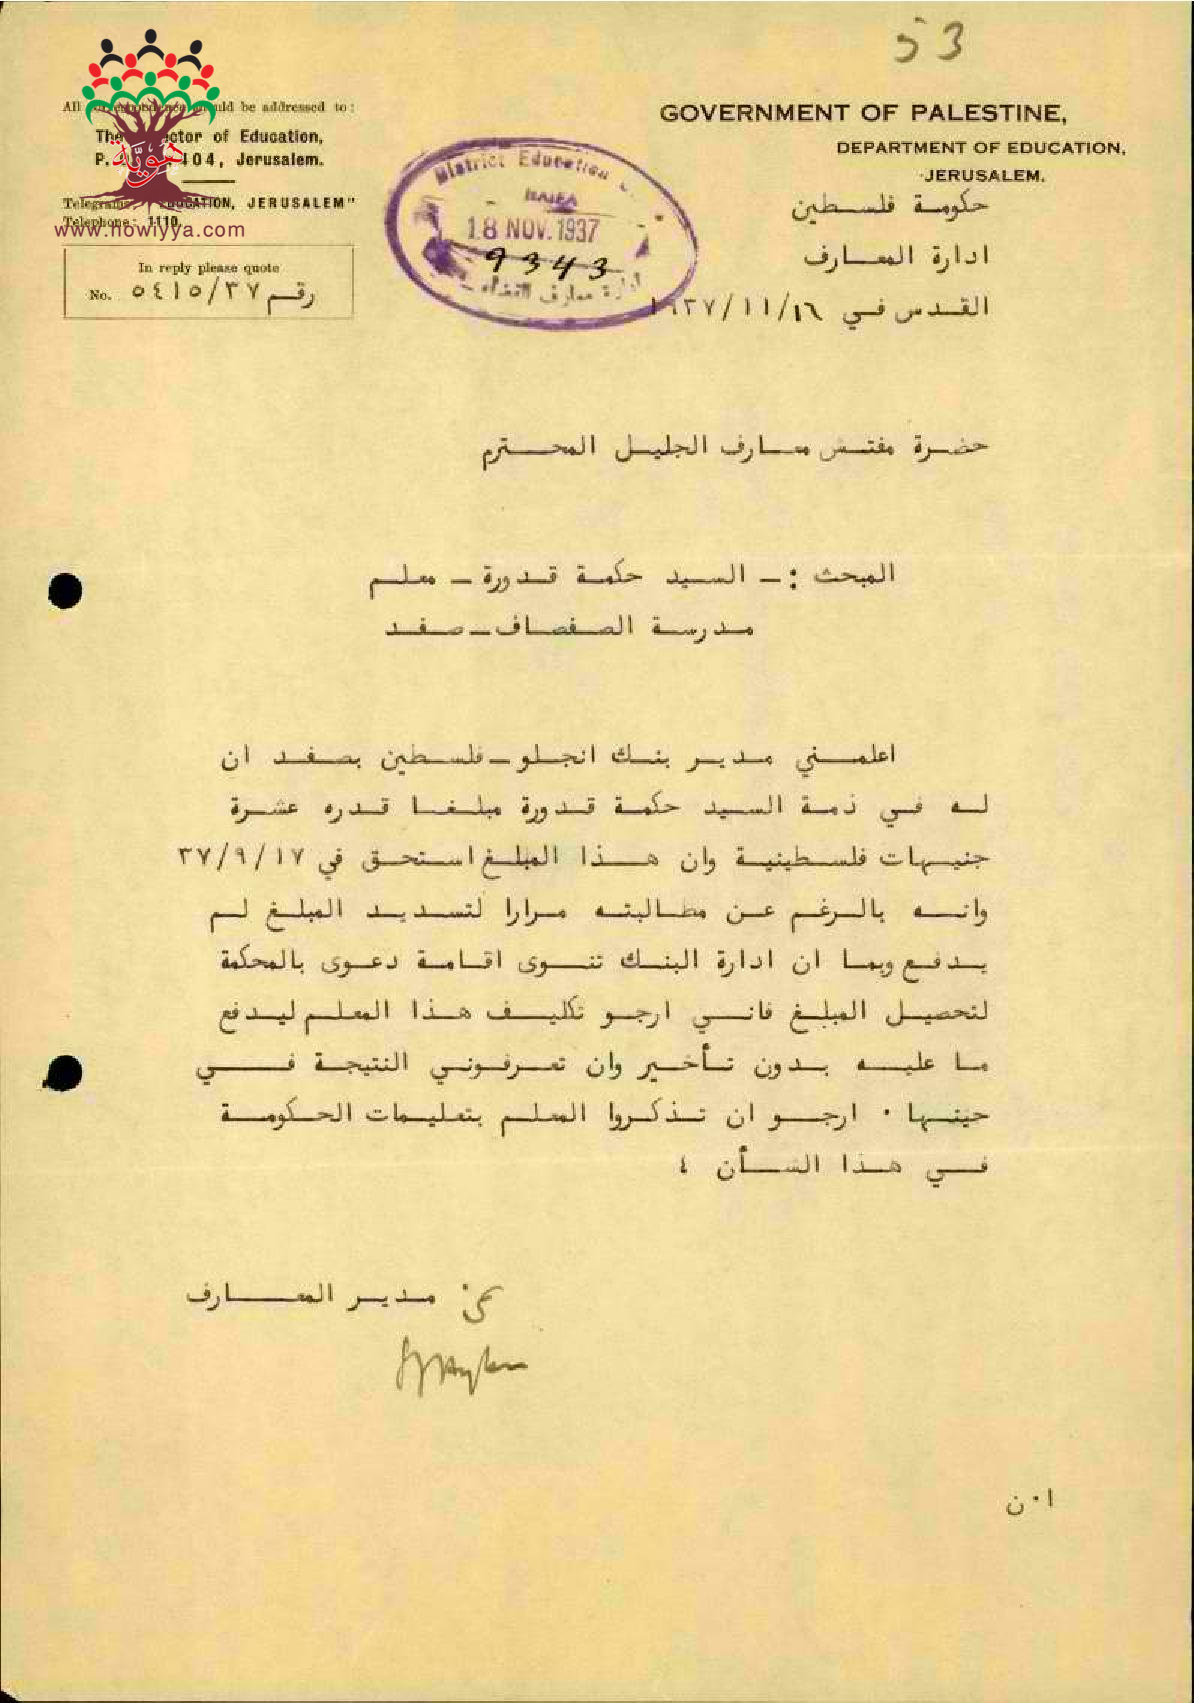 53
All correspondence should be addressed to:
The Director of Education,
P. 104, Jerusalem.
Telegrams: "EDUCATION, JERUSALEM"
Telephone: 1110.
هوية
www.howiyya.com
In reply please quote
No. رقم ٥٤١٥/٣٧
District Education
HAIFA
18 NOV. 1937
9343
ادارة معارف
GOVERNMENT OF PALESTINE,
DEPARTMENT OF EDUCATION,
JERUSALEM.
حكومة فلسطين
ادارة المعارف
القدس في ١٩٣٧/١١/١٦
حضرة مفتش معارف الجليل المحترم
المبحث :- السيد حكمة قدورة - معلم
مدرسة الصفصاف - صفد
اعلمني مدير بنك انجلو - فلسطين بصفد ان
له في ذمة السيد حكمة قدورة مبلغا قدره عشرة
جنيهات فلسطينية وان هذا المبلغ استحق في ٣٧/٩/١٧
وانه بالرغم عن مطالبته مرارا لتسديد المبلغ لم
يدفع وبما ان ادارة البنك تنوى اقامة دعوى بالمحكمة
لتحصيل المبلغ فاني ارجو تكليف هذا المعلم ليدفع
ما عليه بدون تأخير وان تعرفوني النتيجة في
حينها ٠ ارجو ان تذكروا المعلم بتعليمات الحكومة
في هذا الشأن ؛
عن مدير المعارف
ا ٠ ن